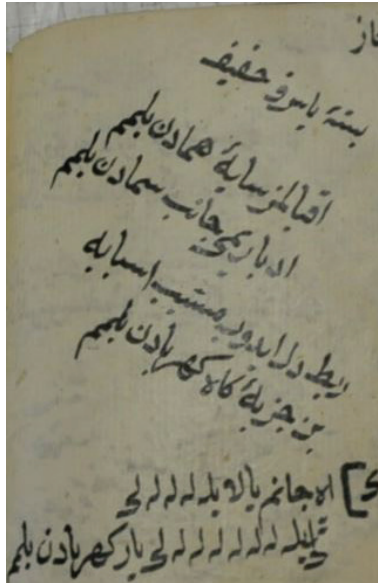 بسته یاسر و خفیف
اقبالمز سایهٔ همادن بلیرم
ادباریمی جانب سمادن بلیرم
ربط دل ایدوب مسبب اسبابه
بن جزبهٔ کاه کهربادن بلیرم
اه جانم یالا یلا له له له لی
له له له له له له لی یار کهربادن بلیرم